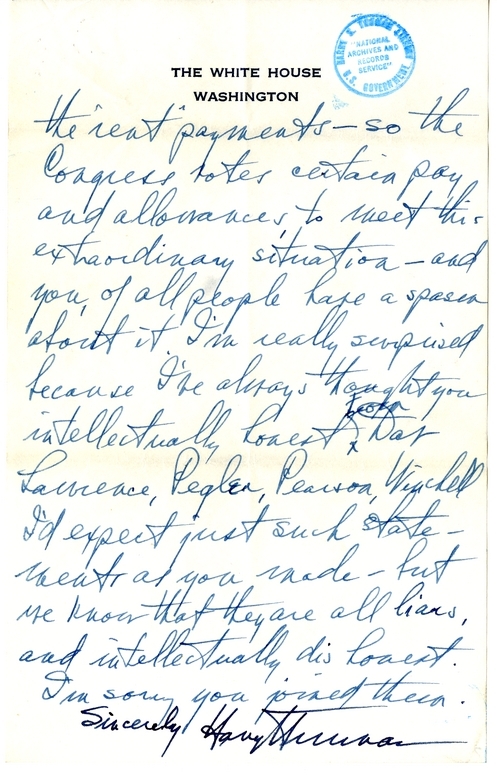 HARRY S. TRUMAN LIBRARY
"NATIONAL
ARCHIVES AND
RECORDS
SERVICE"
U.S. GOVERNMENT
THE WHITE HOUSE
WASHINGTON
the "rent" payments—so the
Congress votes certain pay
and allowances, to meet this
extraordinary situation—and
you, of all people have a spasm
about it. I'm really surprised
because I've always thought you
intellectually honest. From Dav
Lawrence, Pegler, Pearson, Winchell
I'd expect just such state-
ments as you made—but
we know that they are all liars,
and intellectually dishonest.
I'm sorry you joined them.
Sincerely Harry Truman